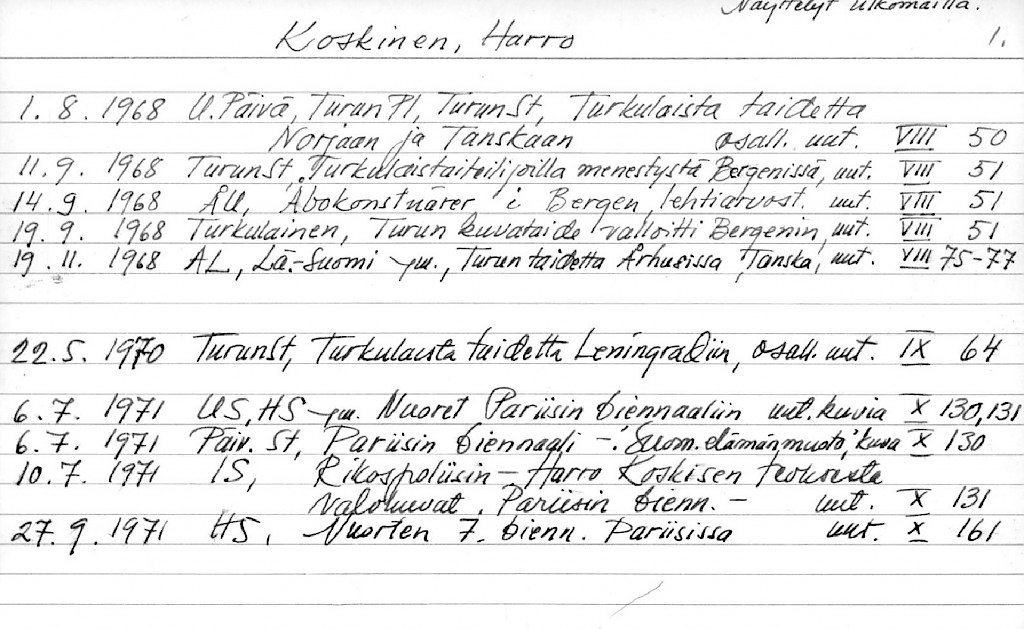 Näyttelyt ulkomailla.
Koskinen, Harro 1.
1. 8. 1968 U. Päivä, Turun Pl, Turun St, Turkulaista taidetta
Norjaan ja Tanskaan osall. uut. VIII 50
11. 9. 1968 TurunSt, Turkulaistaiteilijoilla menestystä Bergenissä, uut. VIII 51
14. 9. 1968 ÅU, Åbokonstnärer i Bergen, lehtiarvost. uut. VIII 51
19. 9. 1968 Turkulainen, Turun kuvataide valloitti Bergenin, uut. VIII 51
19. 11. 1968 AL, Lä.-Suomi ym., Turun taidetta Århusissa Tanska, uut. VIII 75-77
22. 5. 1970 TurunSt, Turkulaista taidetta Leningradiin, osall. uut. IX 64
6. 7. 1971 US, HS ym. Nuoret Pariisin biennaaliin uut. kuvia X 130, 131
6. 7. 1971 Päiv. St, Pariisin biennaali - 'Suom. elämänmuoto', kuva X 130
10. 7. 1971 IS, Rikospoliisin - Harro Koskisen teoksesta
valokuvat, Pariisin bienn. - uut. X 131
27. 9. 1971 HS, Nuorten 7. bienn. Pariisissa uut. X 161